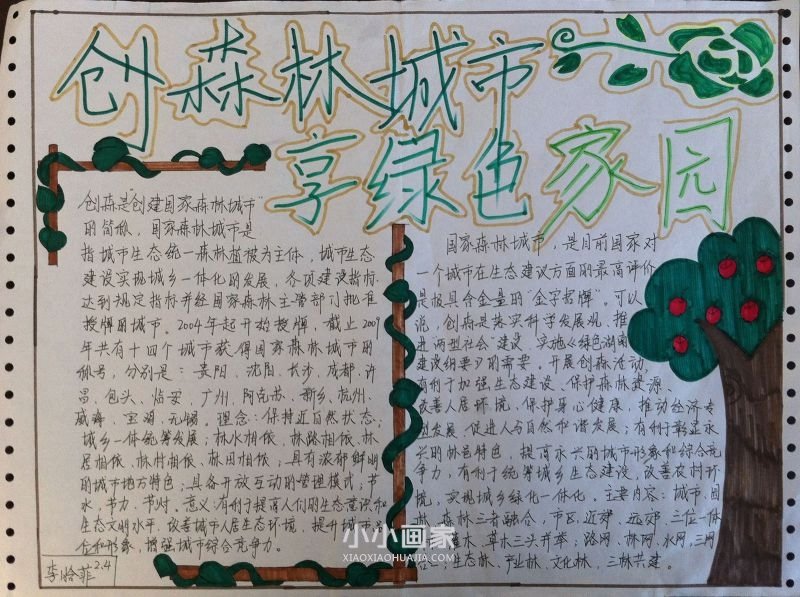 创森林城市
享绿色家园
创森是"创建国家森林城市"
的简称，国家森林城市是
指城市生态统一森林植被为主体，城市生态
建设实现城乡一体化的发展，各项建设指标
达到规定指标并经国家森林主管部门批准
授牌的城市。2004年起开始授牌，截止2009
年共有十四个城市获得国家森林城市的
称号，分别是：贵阳、沈阳、长沙、成都、许
昌、包头、临安、广州、阿克苏、新乡、杭州、
威海、宝鸡、无锡。理念：保持近自然状态；
城乡一体统筹发展；林水相依、林路相依、林
居相依、林村相依、林田相依；具有浓郁鲜明
的城市地方特色；具备开放互动的管理模式；节
水、节力、节财。意义：有利于提高人们的生态意识和
生态文明水平，改善城市人居生态环境，提升城市
和形象，增强城市综合竞争力。
李晗菲 2.4
国家森林城市，是目前国家对
一个城市在生态建议方面的最高评价
是极具含金量的"金字招牌"。可以
说，创森是落实科学发展观、推
进两型社会建设、实施《绿色湖南
建设纲要》的需要。开展创森活动，
有利于加强生态建设、保护森林资源、
改善人居环境，保护身心健康，推动经济
发展，促进人与自然和谐发展；有利于彰显永
兴的林邑特色，提高永兴的城市形象和综合竞
争力，有利于统筹城乡生态建设，改善农村环
境，实现城乡绿化一体化。主要内容：城市、园
林、森林三者融合，市区、近郊、远郊三位一体
灌木、草木三头并举，路网、林网、水网，三网
生态林、产业林、文化林，三林共建。
小小画家
XIAOXIAOHUAJIA.COM